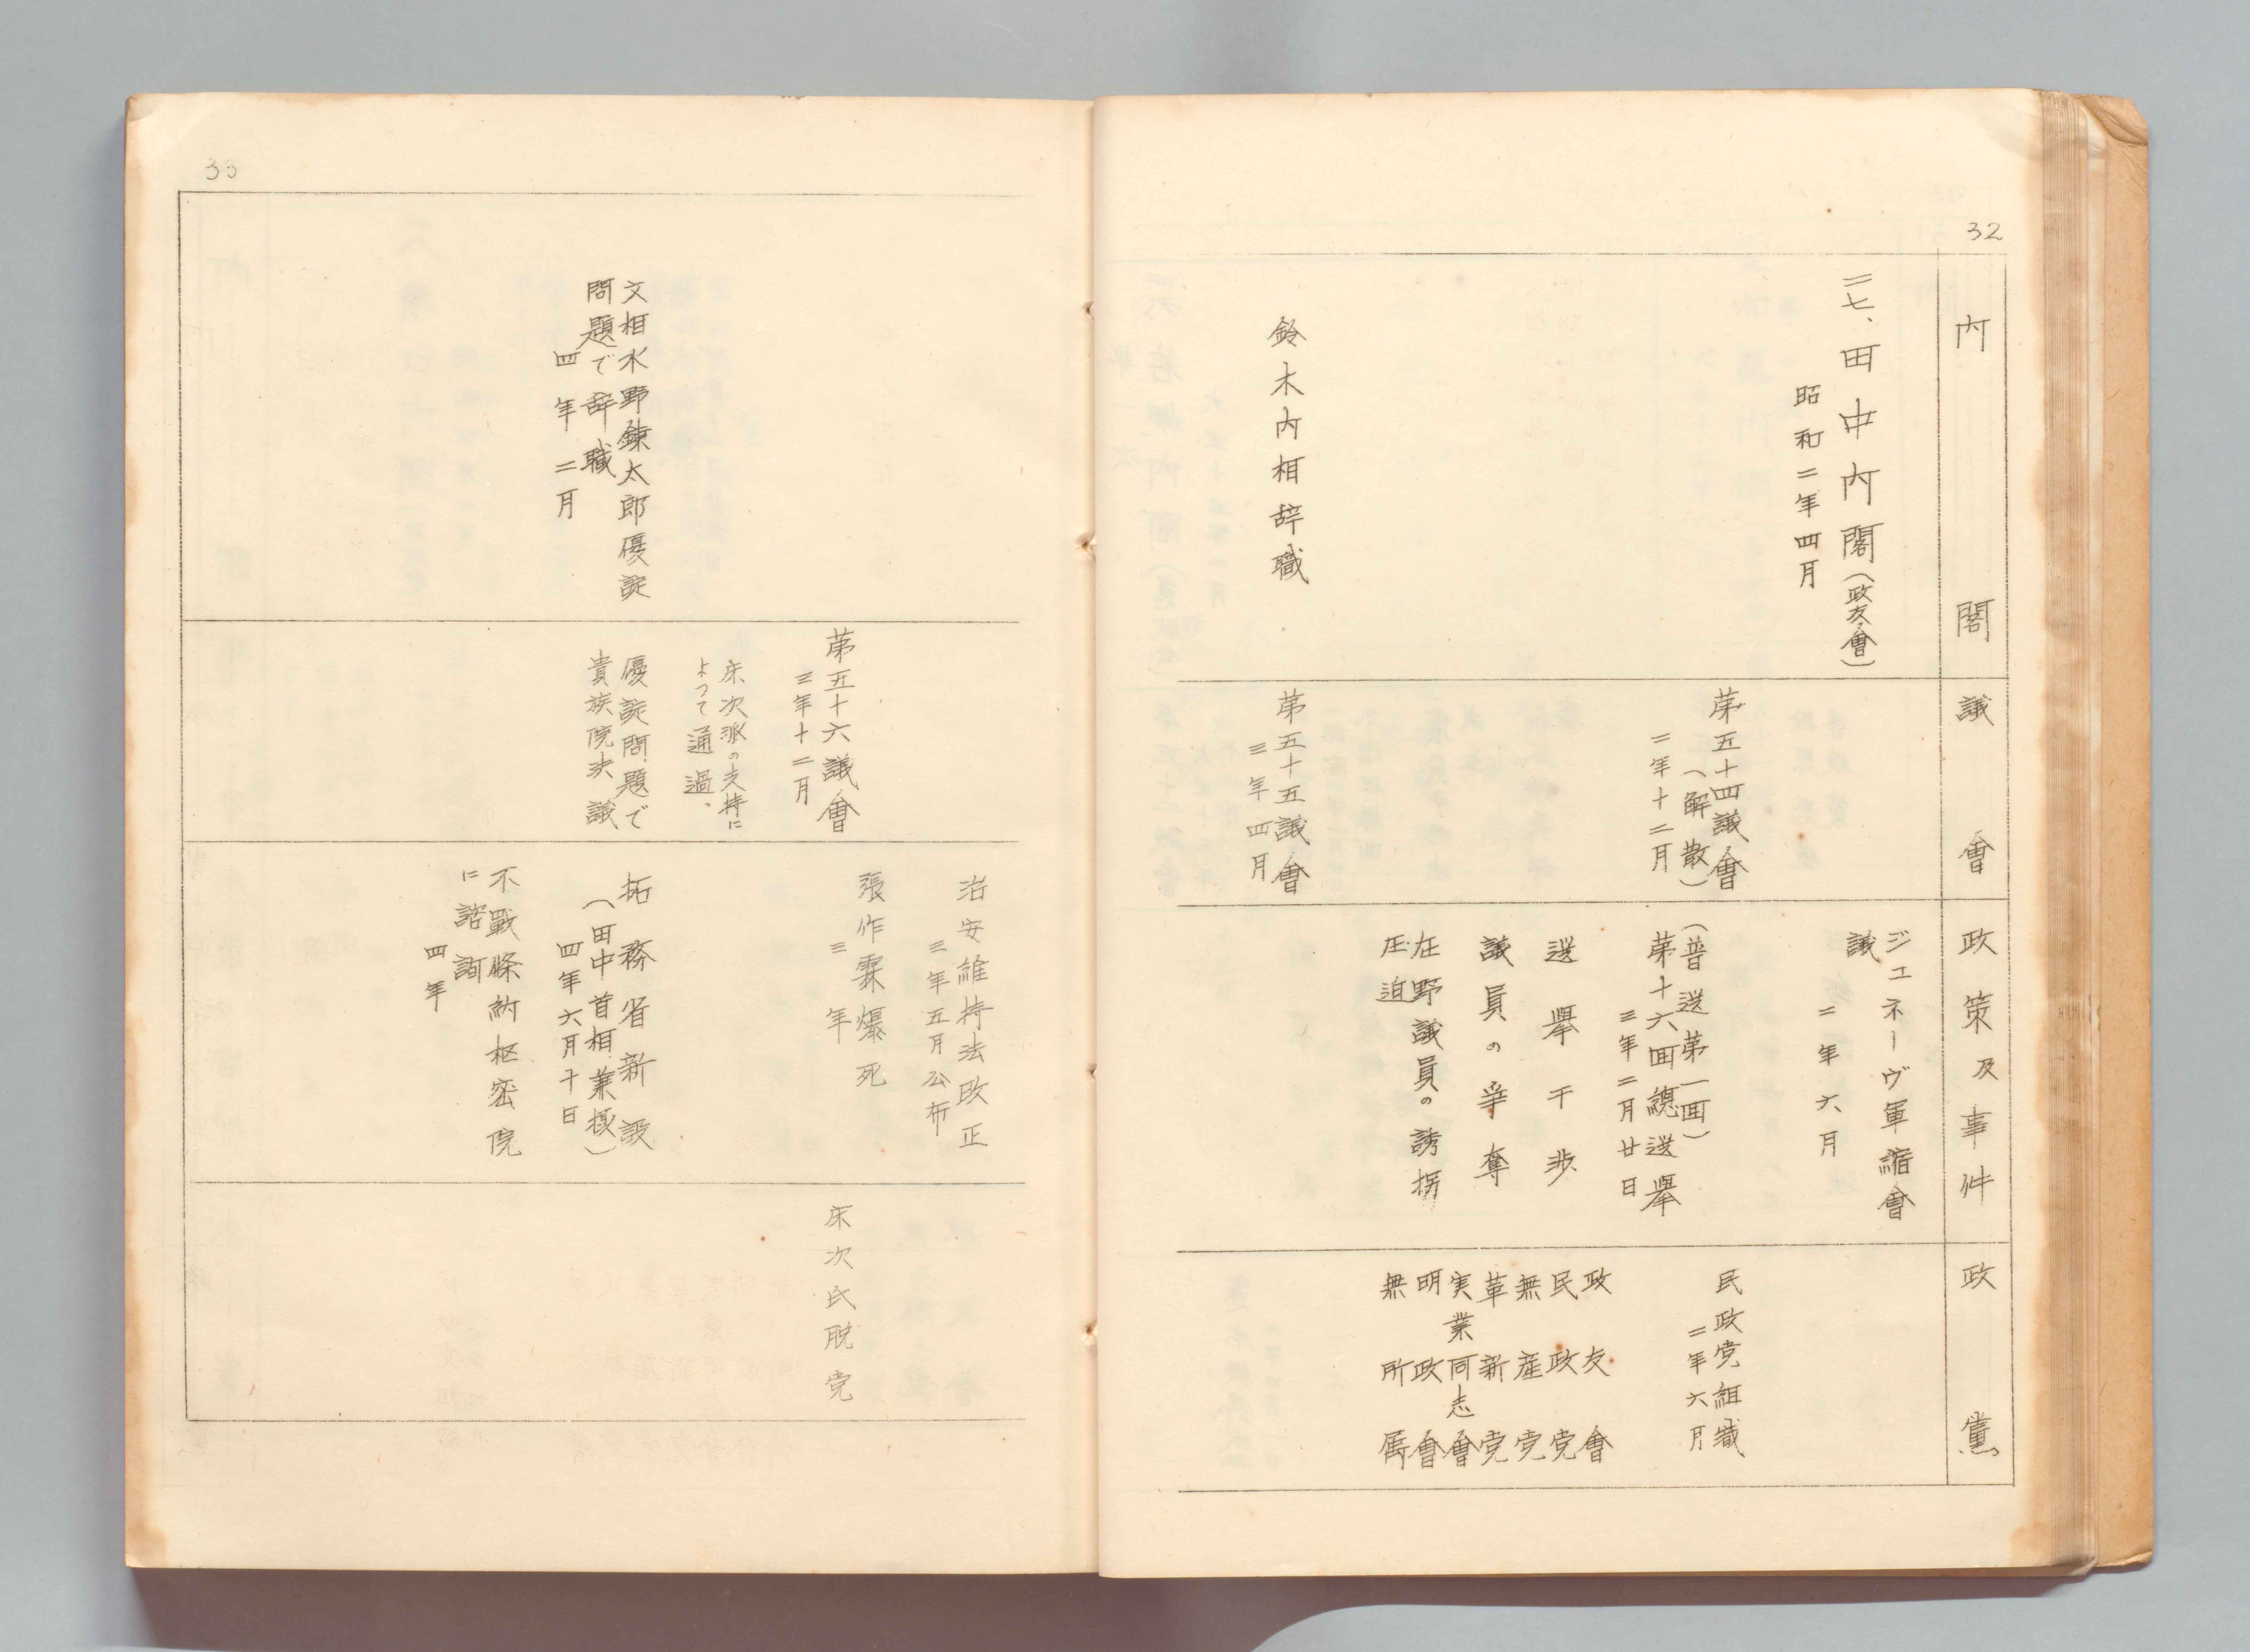 32
内閣
議會
政策及事件
政黨
二七、田中内閣(政友會)
昭和二年四月
鈴木内相辞職
第五十四議會
(解散)
二年十二月
第五十五議會
三年四月
ジュネーヴ軍縮會
議
二年六月
(普選第一回)
第十六回總選擧
三年二月廿日
選擧干渉
議員の争奪
在野議員の誘拐
圧迫
民政党組織
二年六月
政友會
民政党
無産党
革新党
実業同志會
明政會
無所属
33
文相水野錬太郎優諚
問題で辞職
四年二月
第五十六議會
三年十二月
床次派の支持に
よつて通過。
優諚問題で
貴族院決議
治安維持法改正
三年五月公布
張作霖爆死
三年
拓務省新設
(田中首相兼摂)
四年六月十日
不戰條約枢密院
に諮詢
四年
床次氏脱党